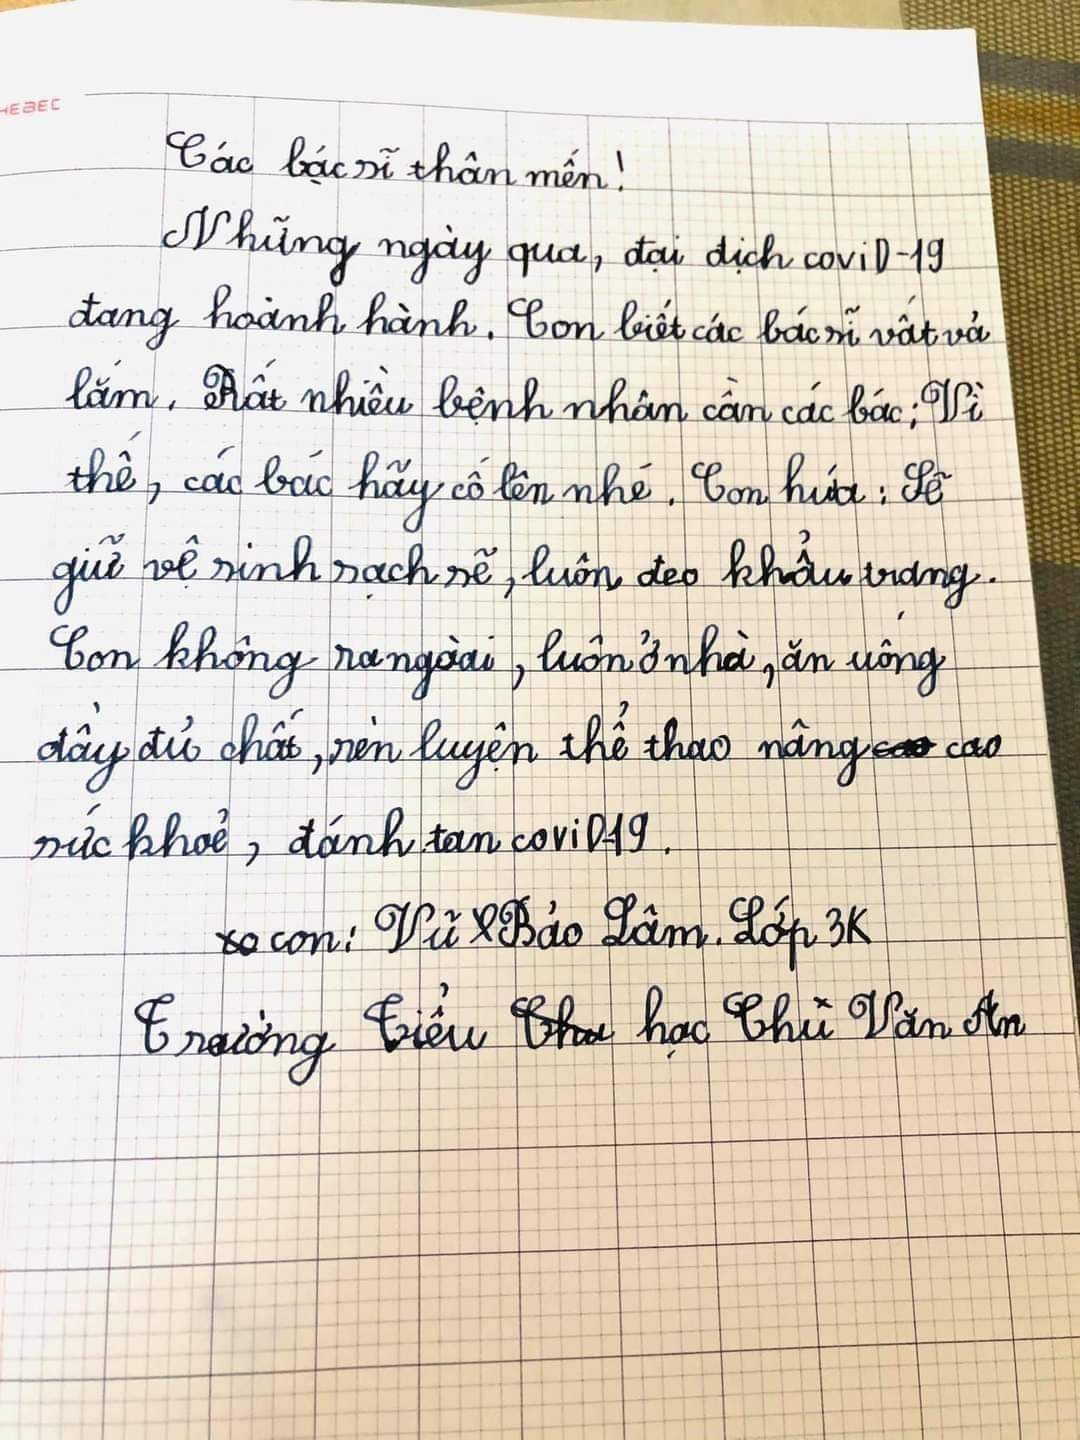 HEBEC
Các bác sĩ thân mến!
Những ngày qua, đại dịch coviD-19
đang hoành hành. Con biết các bác sĩ vất vả
lắm. Rất nhiều bệnh nhân cần các bác; Vì
thế, các bác hãy cố lên nhé. Con hứa: Sẽ
giữ vệ sinh sạch sẽ, luôn đeo khẩu trang.
Con không ra ngoài, luôn ở nhà, ăn uống
đầy đủ chất, rèn luyện thể thao nâng cao
sức khoẻ, đánh tan coviD-19.
con: Vũ Bảo Lâm. Lớp 3K
Trường Tiểu học Chũ Văn An